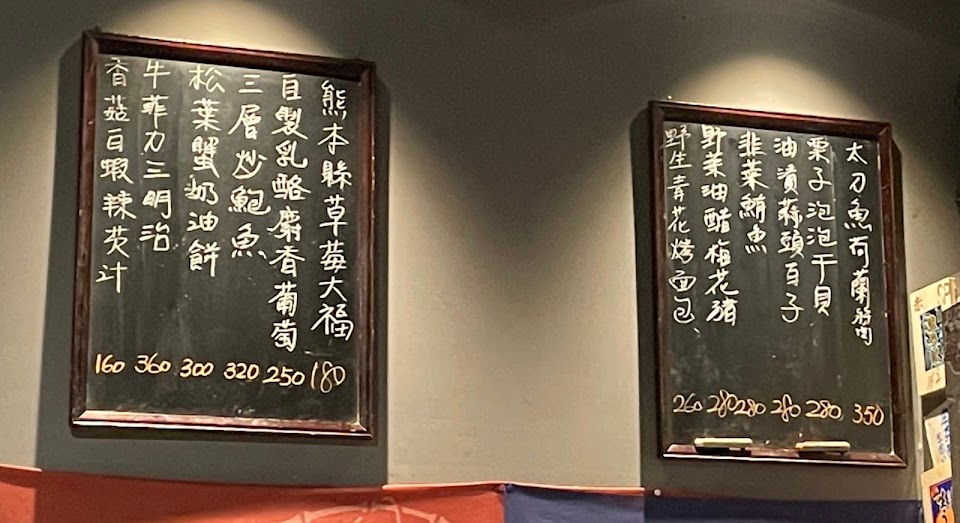 熊本縣草莓大福 180
自製乳酪麝香葡萄 250
三層炒鮑魚 320
松葉蟹奶油餅 300
牛菲力三明治 360
香菇白蝦辣芡汁 160
太刀魚荷蘭 350
栗子泡泡干貝 280
油漬蒜頭白子 280
韭菜鮪魚 280
野菜油醋梅花豬 280
野生青花烤面包 260